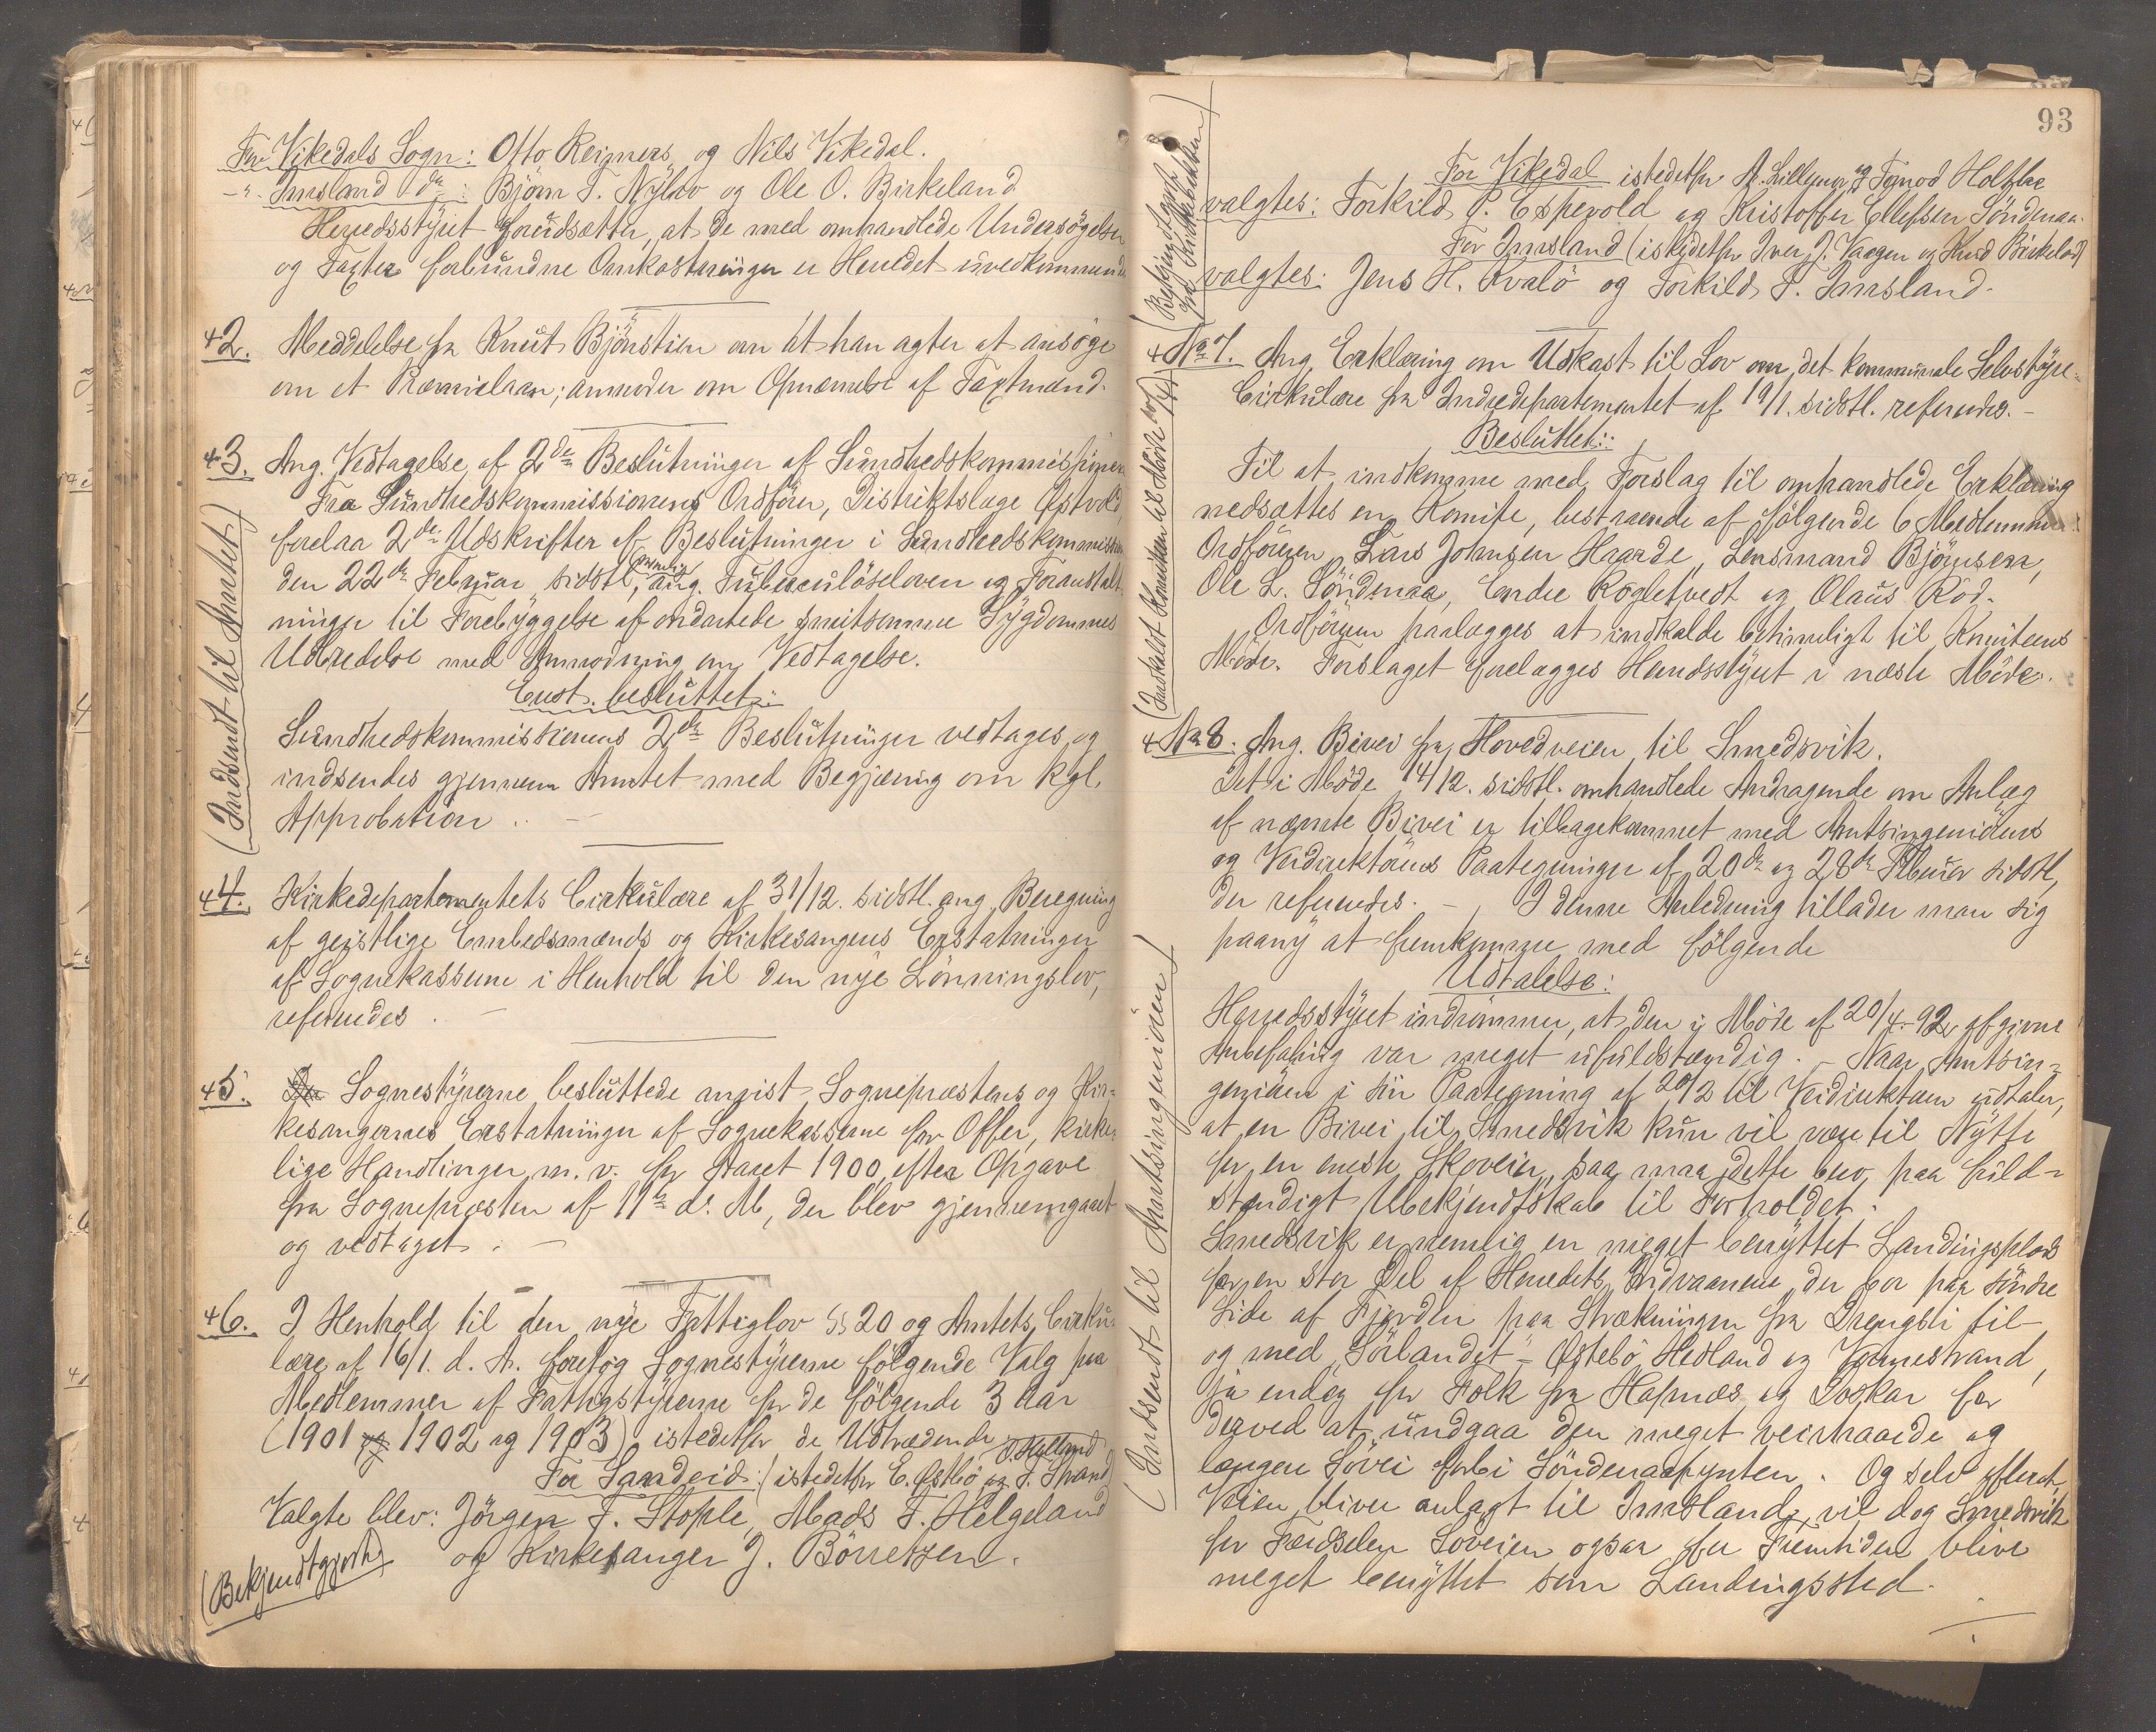 For Vikedals Sogn: Otto Reigners og Nils Vikedal.
-"- Imsland do: Bjørn T. Nylov og Ole O. Birkeland
Herredsstyret forudsætter, at de med omhandlede Undersøgelser
og Taxter forbundne Omkostninger er Herredet uvedkommende
2. Meddelelse fra Knut Bjønstien om at han agter at ansøge
om et Præmielaan; anmoder om Opnævnelse af Taxtmænd.
3. Ang. Vedtagelse af 2de Beslutninger af Sundhedskommissionen
Fra Sundhedskommissionens Ordfører, Distriktslæge Østvold,
forelaa 2de Udskrifter af Beslutninger i Sundhedskommission
den 22de Februar sidstl, nemlig ang. Tuberculøseloven og Foranstalt-
ninger til Forebyggelse af ondartede smitsomme Sygdommes
Udbredelse med Anmodning om Vedtagelse.
Enst. besluttet:
Sundhedskommissionens 2de Beslutninger vedtages og
indsendes gjennem Amtet med Begjæring om kgl.
Approbation.
(Indsendt til Amtet)
4. Kirkedepartementets Cirkulære af 31/12. sidstl. ang. Beregning
af geistlige Embedsmænds og Kirkesangeres Erstatninger
af Sognekasserne i Henhold til den nye Lønningslov,
refereredes.
5. Sognestyrerne besluttede angist Sognepræstens og Kir-
kesangernes Erstatninger af Sognekasserne for Offer, kirke-
lige Handlinger m. v. for Aaret 1900, efter Opgave
fra Sognepræsten af 11te ds. M, der blev gjennemgaaet
og vedtaget.
6. I Henhold til den nye Fattiglov §§ 20 og Amtets Cirku-
lære af 16/1. d. A. foretog Sognestyrerne følgende Valg paa
Medlemmer af Fattigstyrerne for de følgende 3 Aar
(1901 og 1902 og 1903) istedetfor de Udtrædende
For Sandeid: (istedetfor E. Østbø og T. Strand
Valgte blev: Jørgen T. Stople, Mads T. Helgeland
og Kirkesanger J. Børretzen.
(Bekjendtgjort)
93
For Vikedal istedetfor A. Lillenes og Tormod Holthe
valgtes: Torkild P. Espevold og Kristoffer Ellefsen Søndenaa.
For Imsland (istedetfor Iver J. Vaagen og Knud Birkeland)
valgtes: Jens H. Kvalø og Torkild T. Imsland.
No 7. Ang. Erklæring om Udkast til Lov om det kommunale Selvstyre-
Cirkulære fra Indredepartementet af 19/1. sidstl. refereredes.-
Besluttet:
Til at indkomme med Forslag til omhandlede Erklæring
nedsættes en Komite, bestaaende af følgende 6 Medlemmer:
Ordføreren, Lars Johnsen Haarde, Lensmand Bjørnsen,
Ole L. Søndenaa, Endre Rogletvedt og Olaus Rød.
Ordføreren paalægges at indkalde betimeligt til Komiteens
Møde. Forslaget forelægges Herredsstyret i næste Møde.
No 8. Ang. Bivei fra Hovedveien til Smedsvik.
Det i Møde 14/12. sidstl. omhandlede Andragende om Anlæg
af nævnte Bivei er tilbagekommet med Amtsingeniørens
og Veidirektørens Paategninger af 20de og 28de Februar sidstl,
der refereredes. - I denne Anledning tillader man sig
paany at fremkomme med følgende
Udtalelse:
Herredsstyret indrømmer, at den i Møde af 20/4-92 afgivne
Anbefaling var meget ufuldstændig. - Naar Amtsin-
geniøren i sin Paategning af 20/2 til Veidirektøren udtaler,
at en Bivei til Smedsvik kun vil være til Nytte
for en eneste Skovein, saa maa dette bero paa fuld-
stændigt Ubekjendtskab til Forholdet.
Smedsvik er nemlig en meget benyttet Landingsplads
for en stor Del af Herredets Indvaanere, der bor paa søndre
Side af Fjorden paa Strækningen fra Drengsli til
og med "Sørlandet" - Østebø, Hedland og Vormestrand,
ja endog for Folk fra Hapnæs og Dokar for
derved at undgaa den meget veirhaarde og
længere Søvei forbi Søndenaapynten. Og selv efterat
Veien bliver anlagt til Imsland, vil dog Smedsvik
for Færdselen Søveien ogsaa for Fremtiden blive
meget benyttet som Landingssted.
(Indsendt til Amtsingeniøren)